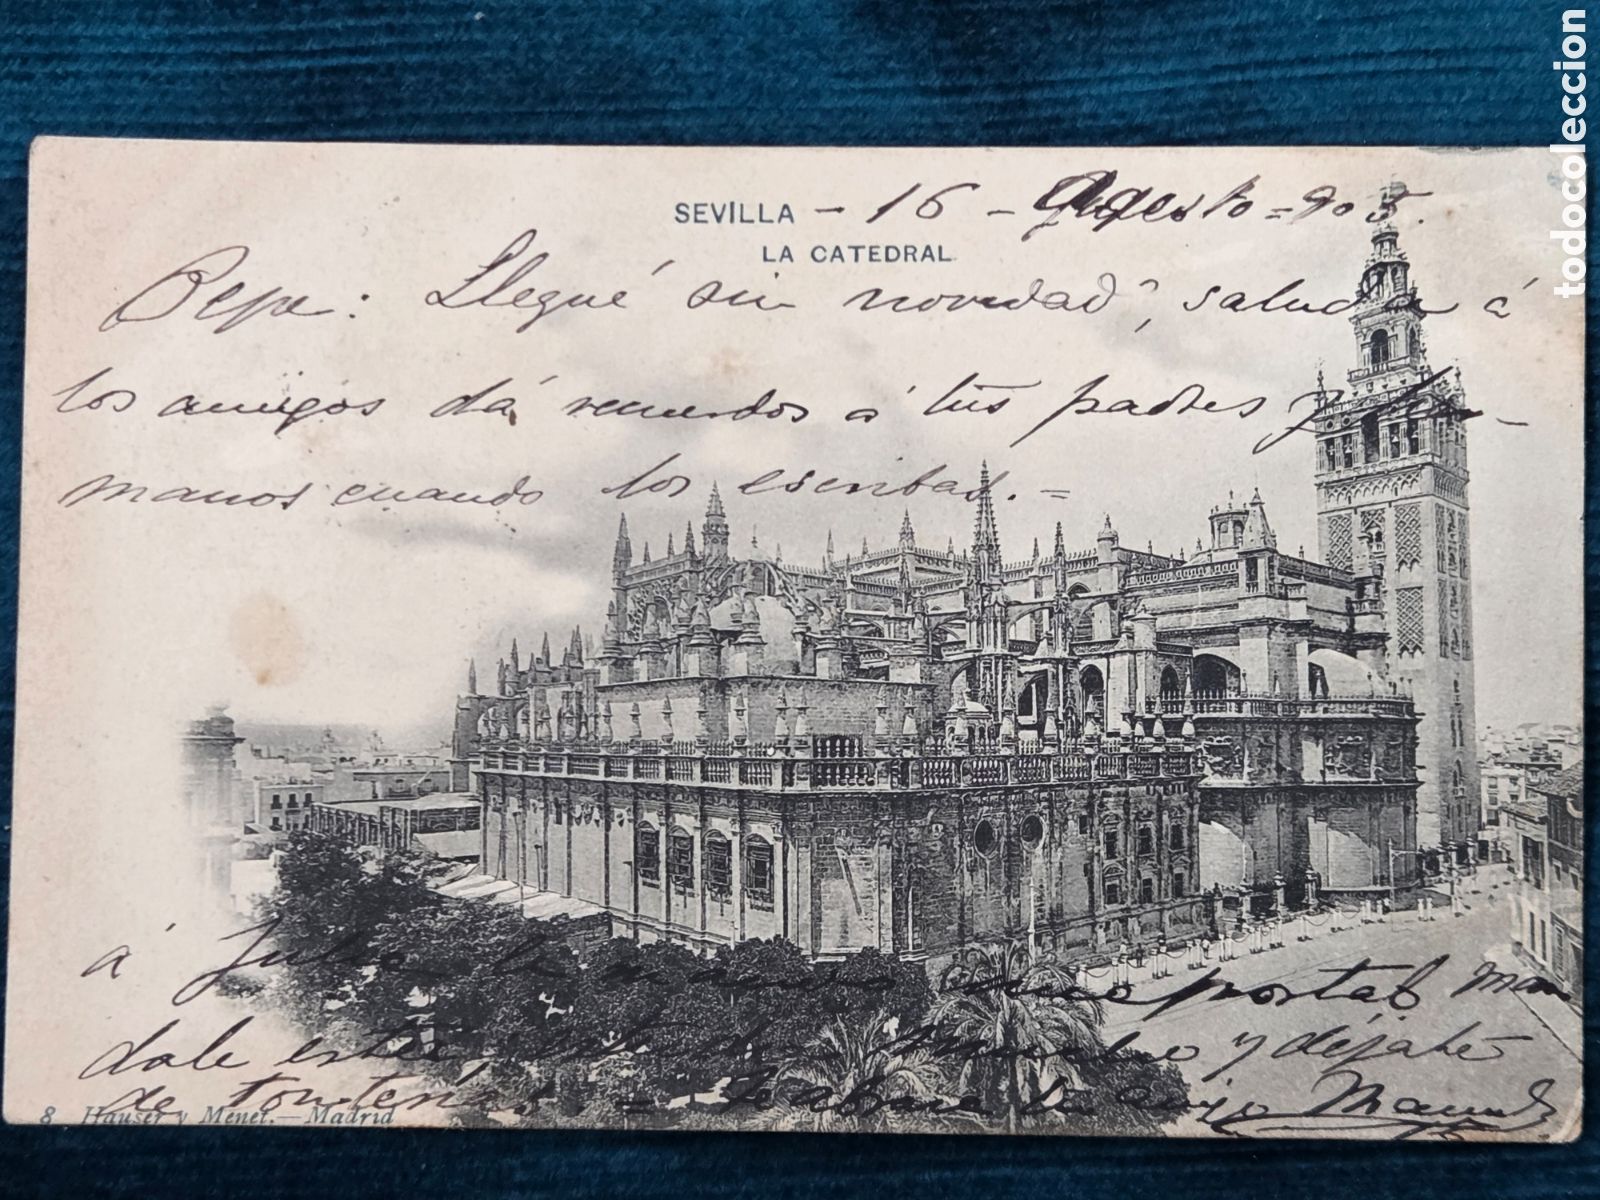 SEVILLA - 16 - Agosto = 905.
LA CATEDRAL
Pepe: Llegué sin novedad, saluda á
los amigos dá recuerdos á tus padres y her-
manos cuando los escribas. =
á Julia le mando una postal man
dale este mucho y déjate
de tonterías. = Te abraza tu amigo Manuel
8 Hauser y Menet. - Madrid
todocoleccion